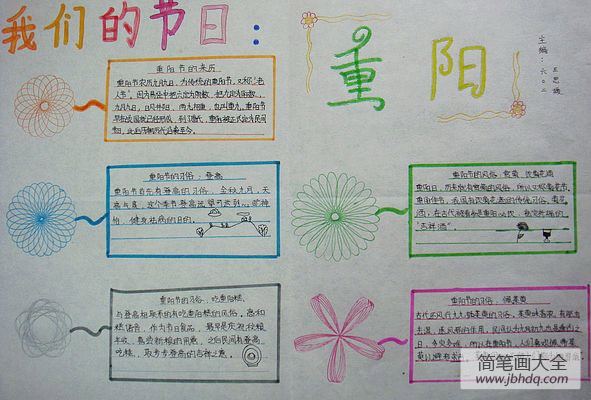 我们的节日：
重阳
主编：王思媛
六.0二
重阳节的来历
重阳节农历九月九日，为传统的重阳节，又称"老
人节"。因为易经中把六定为阴数，把九定为阳数，
九月九日，日月并阳，两九相重，也叫重九。重阳节
早在战国就已经形成，到了唐代，重阳被正式定为民间
节日，此后历朝历代沿袭至今。
重阳节的习俗：登高
重阳节首先有登高的习俗，金秋九月，天
高气爽，这个季节登高远望可达到心旷神
怡、健身祛病的目的。
重阳节的风俗：赏菊、饮菊花酒
重阳日，历来就有赏菊的风俗，所以又称菊花节。
重阳佳节，我国有饮菊花酒的传统习俗。菊花
酒，在古代被看作是重阳必饮、祛灾祈福的
"吉祥酒"。
重阳节的习俗：吃重阳糕
与登高相联系的有吃重阳糕的风俗。高和
糕谐音，作为节日食品，最早是庆祝秋粮
丰收、喜尝新粮的用意，之后民间有登高
吃糕，取步步登高的吉祥之意。
重阳节的习俗：佩茱萸
古代还风行九九插茱萸的习俗。茱萸味香浓，有驱虫
去湿、逐风邪的作用，民间认为九月初九也是逢凶之
日，多灾多难，所以在重阳节，人们喜欢佩带茱
萸以辟邪求吉。
简笔画大全
www.jbhdq.com